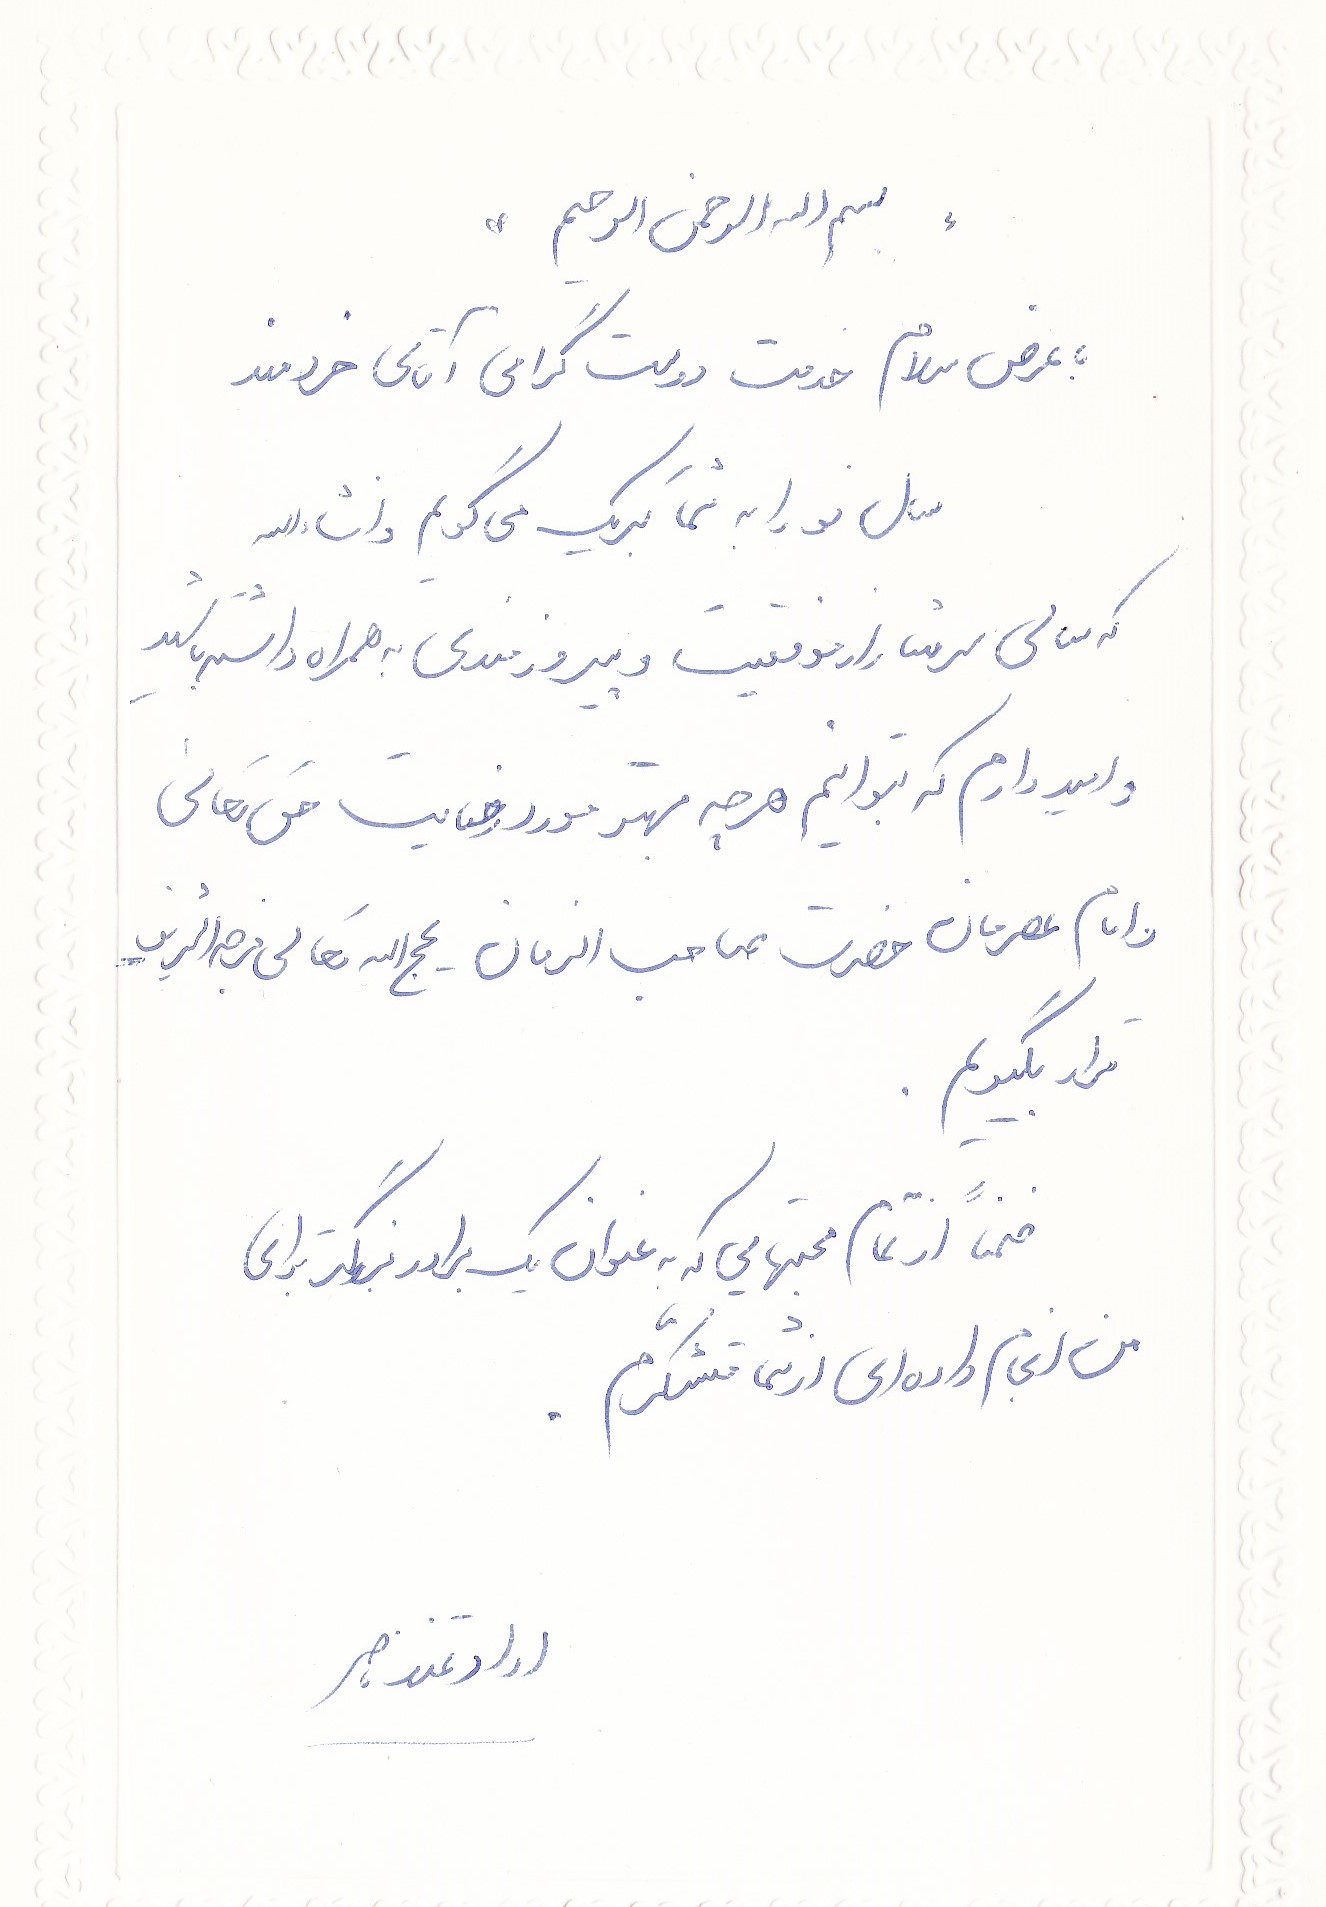 « بسم الله الرحمن الرحیم »
با عرض سلام خدمت دوست گرامی آقای خردمند
سال نو را به شما تبریک می گویم و انشاءالله
که سالی سرشار از موفقیت و پیروزمندی به همراه داشته باشید
و امیدوارم که بتوانیم هرچه بهتر مورد رضایت حق تعالی
و امام عصرمان حضرت صاحب الزمان عجل الله تعالی فرجه الشریف
قرار بگیریم .
ضمناً از تمام محبتهایی که به عنوان یک برادر بزرگتر برای
من انجام داده ای از شما متشکّرم .
ارادتمند